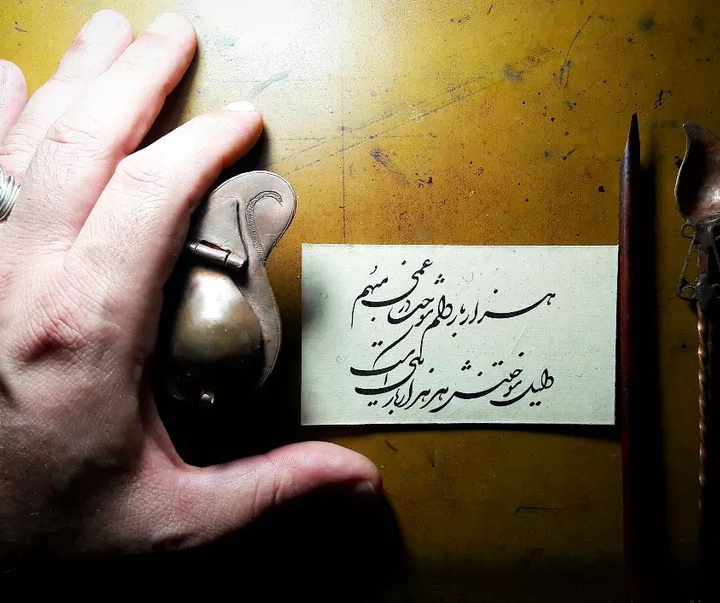 هزار بار دلم سوخت در غمی مبهم
دلیل سوختنش هر هزار بار یکی است